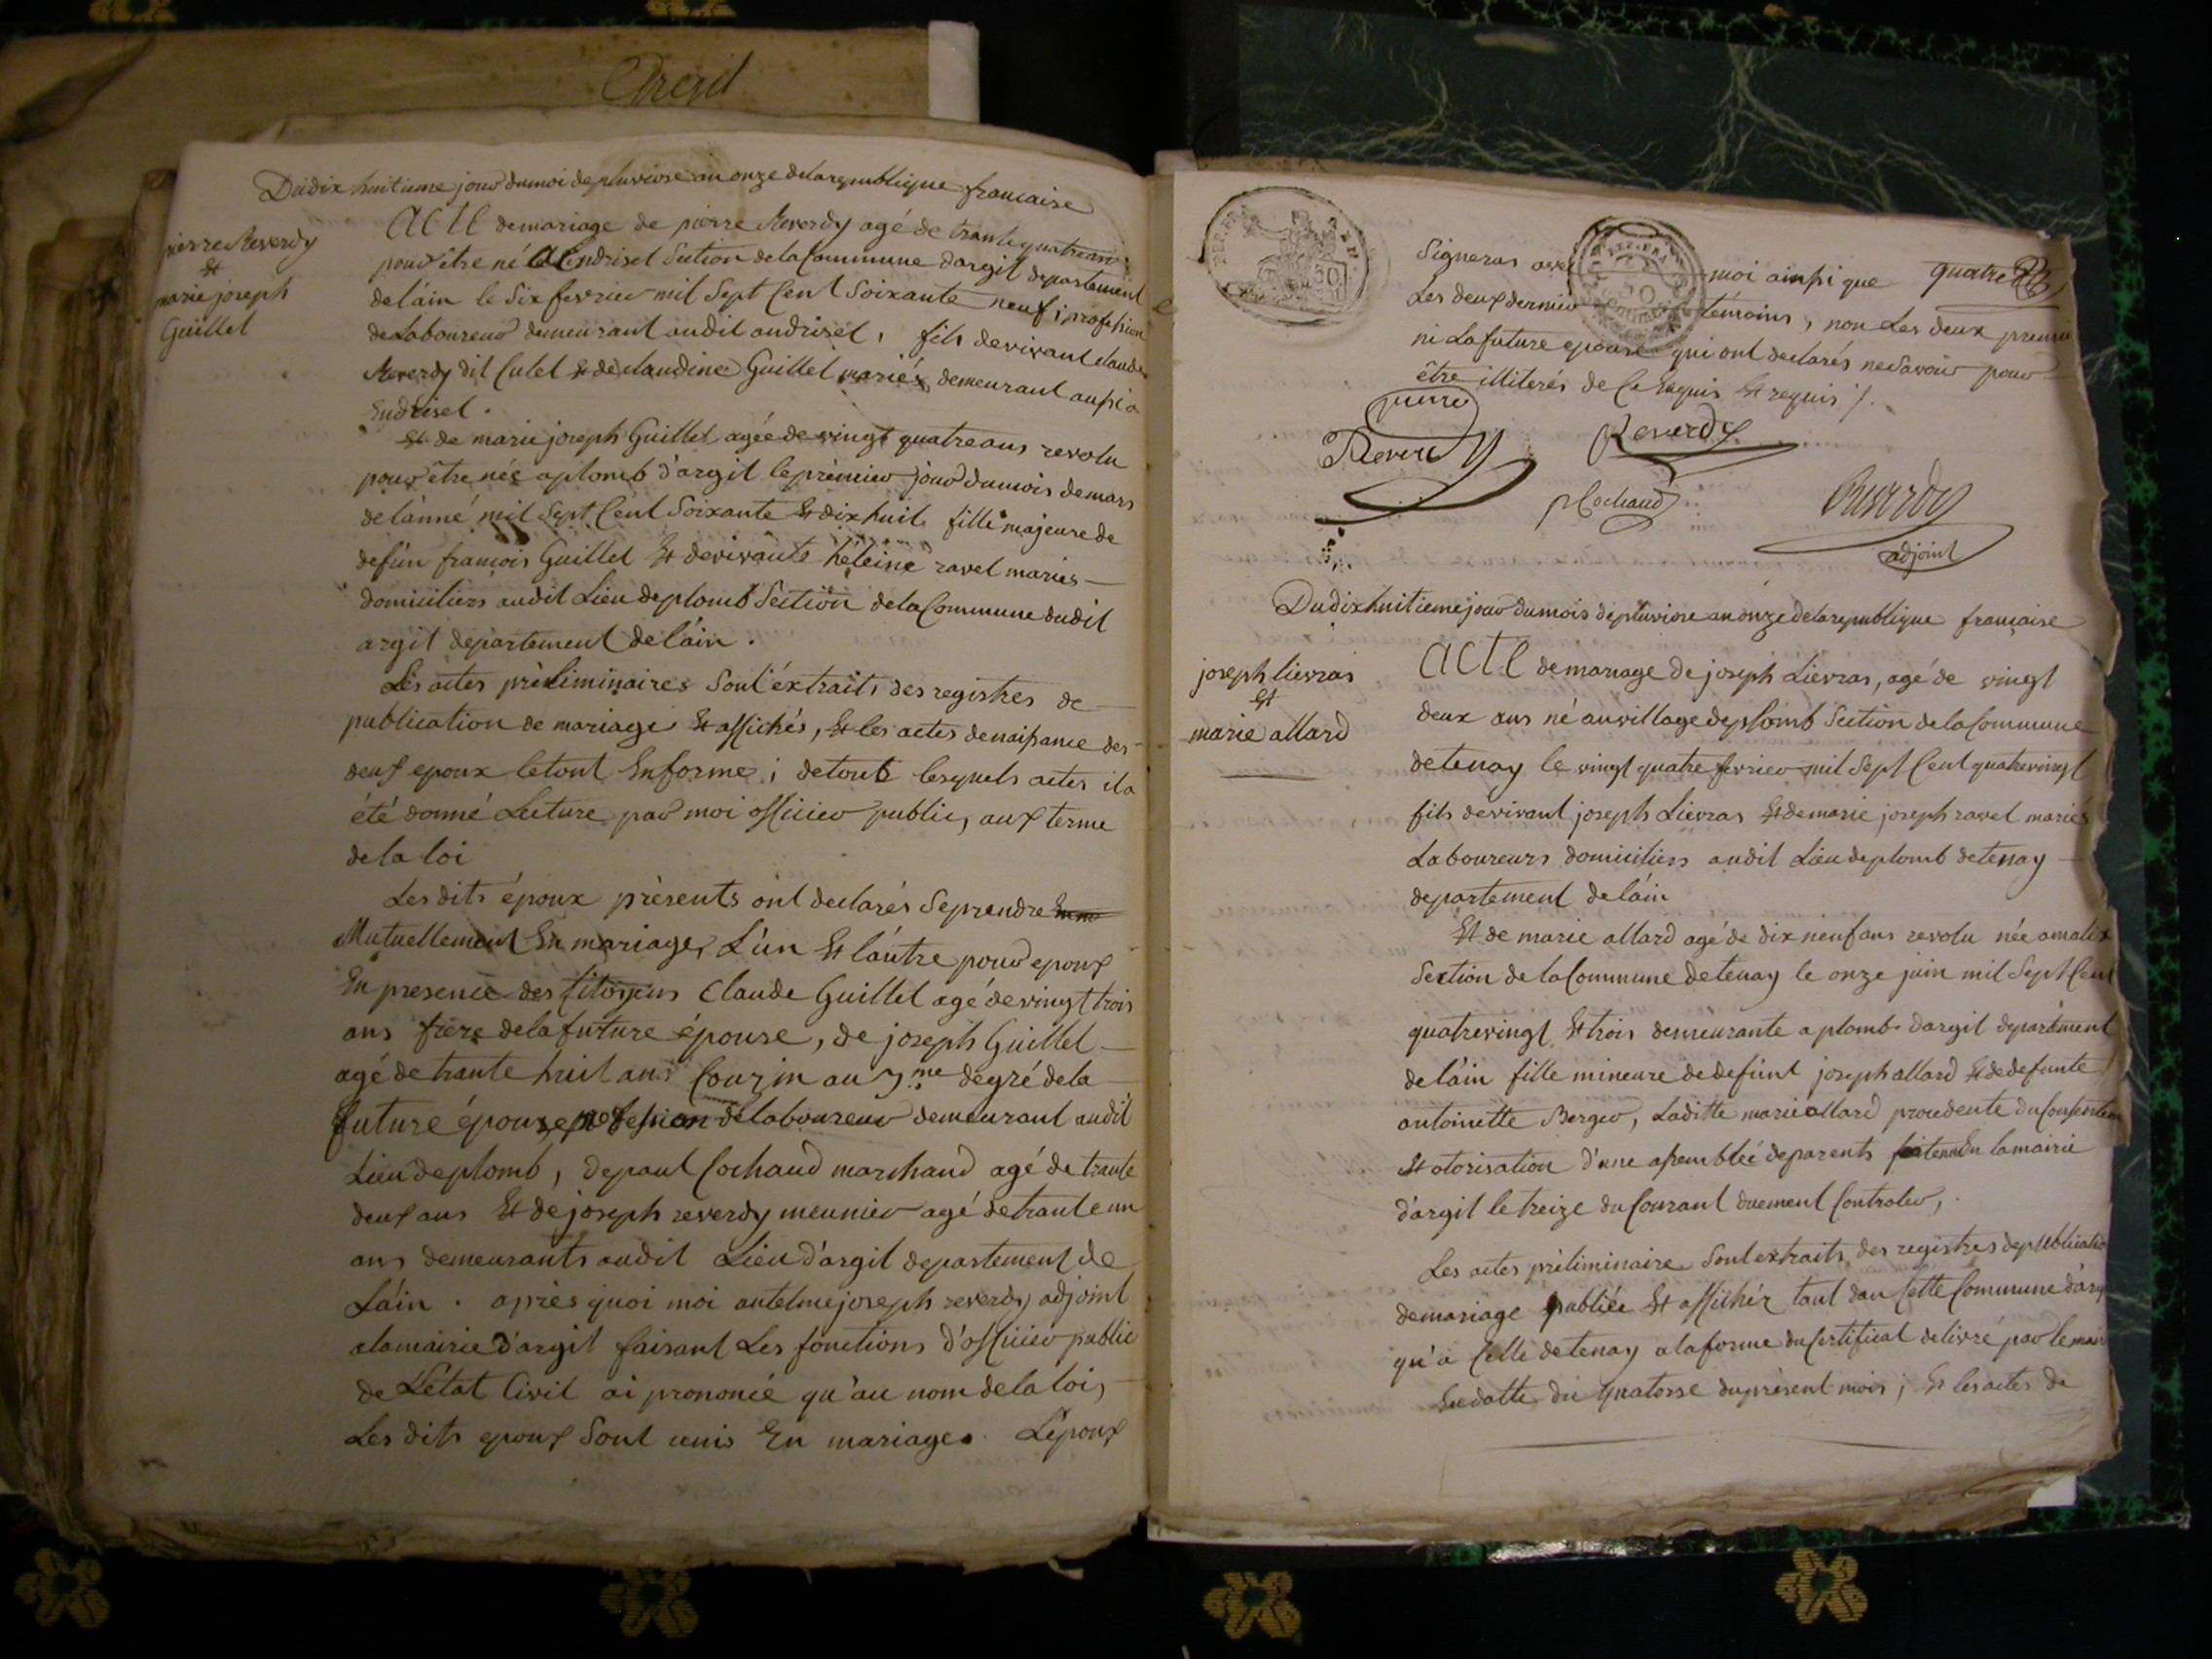 Argil
Du dix huitieme jour du moi de pluviose an onze de la republique francaise
pierre Reverdy
Et
marie joseph
Guillet
ACTE de mariage de pierre Reverdy agé de trante quatre ans
pour être né a Endrisel Section de la Commune dargil departement
de láin le Six fevrier mil Sept Cent Soixante neuf, profession
de Laboureur demeurant audit andrisel, fils de vivant claude
Reverdy dit Culet Et de claudine Guillet mariés demeurant aussi a
Endrisel.
Et de marie joseph Guillet agée de vingt quatre ans revolu
pour être née a plomb d'argil le prémier jour du mois de mars
de lánné mil Sept Cent Soixante Et dix huit fille majeure de
defun francois Guillet Et de vivante héleine ravel mariés
domiciliers audit Lieu de plomb Section de la Commune dudit
argil departement de láin.
Les actes préliminaires Sont éxtraits des registres de
publication de mariage Et affichés, Et les actes de naissance des
deux epoux le tout En forme; de touts lesquels actes il a
été donné Lecture par moi officier public, aux terme
de la loi
Les dits époux présents ont declarés Se prendre
Mutuellement En mariage, L'un Et láutre pour epoux
En presence des Citoyens Claude Guillet agé de vingt trois
ans frère de la future épouse, de joseph Guillet
agé de trante huit ans Couzin au 7me degré de la
future épouze profession de laboureur demeurant audit
Lieu de plomb, de paul Cochaud marchand agé de trante
deux ans Et de joseph reverdy meunier agé de trante un
ans demeurants audit Lieu d'argil departement de
Láin. après quoi moi antelme joseph reverdy adjoint
a la mairie d'argil faisant Les fonctions d'officier public
de L'état Civil ai prononcé qu'au nom de la loi,
Les dits epoux Sont unis En mariage. L'époux
REP. FRA.
50
Signeras avec moi ainssi que quatre
Les deux dernier témoins, non Les deux premier
ni La future epouse qui ont declarés ne Savoir pour
être illiterés de Ce Enquis Et requis /.
pierre
Reverdy
Reverdy
p Cochaud
Reverdy
adjoint
Du dix huitieme jour du mois de pluviose an onze de la republique francaise
joseph lievras
Et
marie allard
ACTE de mariage de joseph Lievras, agé de vingt
deux ans né au village de plomb Section de la Commune
de tenay le vingt quatre fevrier mil Sept Cent quatrevingt
fils de vivant joseph Lievras Et de marie joseph ravel mariés
Laboureurs domiciliers audit Lieu de plomb de tenay
departement de láin
Et de marie allard agé de dix neuf ans revolu née a malix
Section de la Commune de tenay le onze juin mil Sept Cent
quatrevingt Et trois demeurante a plomb dargil departément
de láin fille mineure de defunt joseph allard Et de defunte
antoinette Berger, Laditte marie allard procedente du Consentem
Et otorisation d'une assemblée de parents En la mairie
d'argil le treize du Courant duement Controler,
Les actes préliminaire Sont extraits des registres de publicatio
de mariage publiée Et affichér tant dan Cette Commune d'arg
qu'a Celle de tenay a la forme du Certificat delivré par le mair
En datte du quatorse du présent mois; Et les actes de